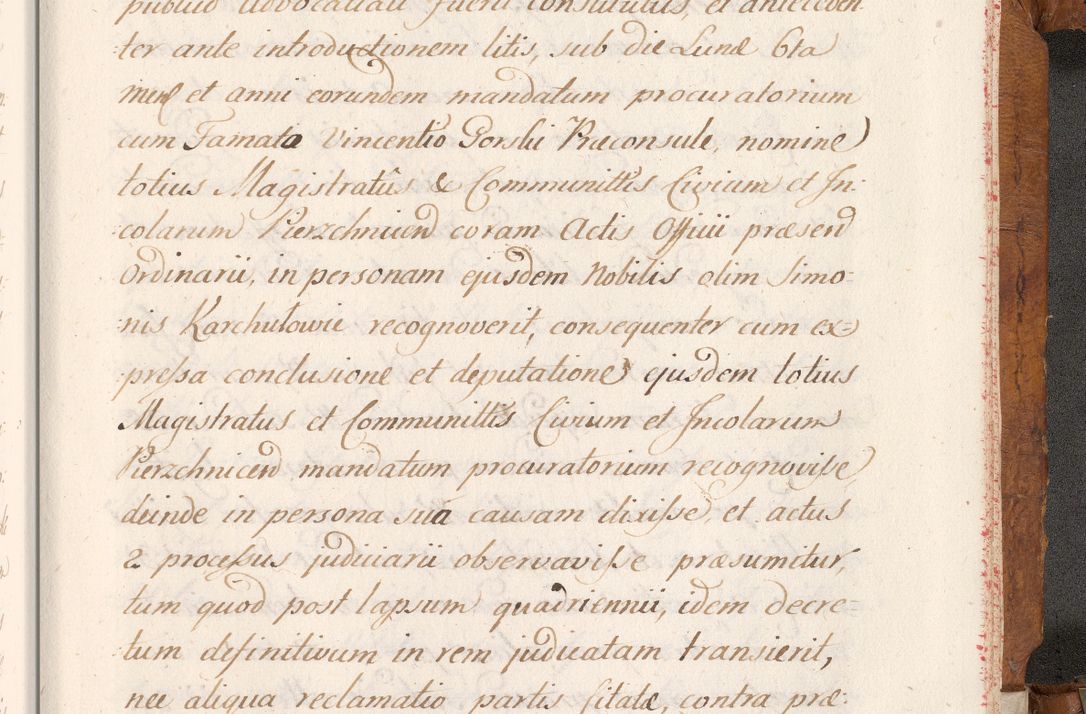 publico Advocatiali fuerit constitutus, et anteceden
ter ante introductionem litis, sub die Lunæ 6ta
mens et anni eorundem mandatum procuratorium
cum Famato Vincentio Gorski Præconsule, nomine
totius Magistratûs & Communittis Civium et In:
:colarum Pierzchnicen coram Actis Officii præsen
Ordinarii, in personam ejusdem Nobilis olim Simo:
:nis Karchutowic recognoverit, consequenter cum ex=
:pressa conclusione et deputatione ejusdem totius
Magistratus et Communittis Civium et Incolarum
Pierzchnicen mandatum procuratorium recognovisse,
deinde in persona sua causam dixisse, et actus
2 processus judiciarii observavisse præsumitur,
tum quod post lapsum quadriennii, idem decre=
:tum definitivum in rem judicatam transierit,
nec aliqua reclamatio partis Citatæ, contra præ: